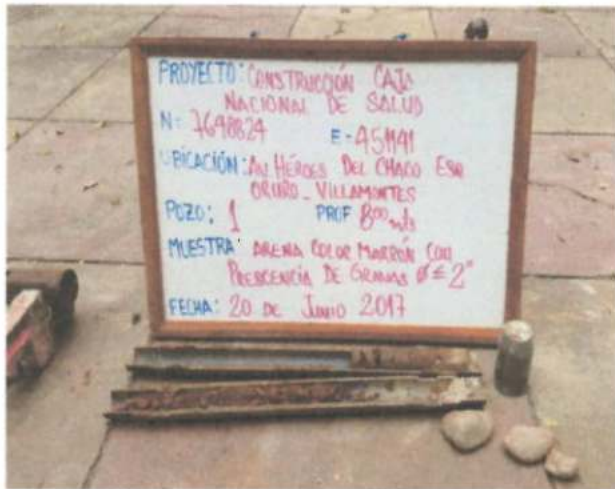 PROYECTO: CONSTRUCCIÓN CAJA
NACIONAL DE SALUD
N: 7648824 E-451141
UBICACIÓN: AV. HÉROES DEL CHACO ESQ
ORURO - VILLAMONTES
POZO: 1 PROF 8⁰⁰ mts
MUESTRA: ARENA COLOR MARRÓN CON
PRESCENCIA DE GRAVAS Ø ≤ 2"
FECHA: 20 DE JUNIO 2017